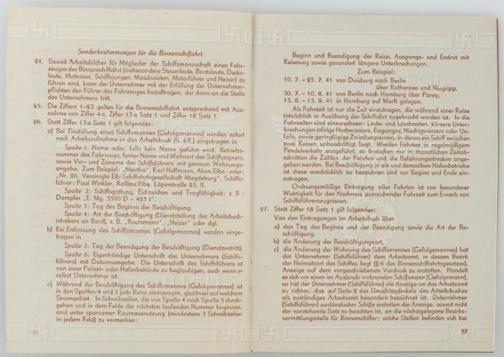 Sonderbestimmungen für die Binnenschiffahrt.
24. Soweit Arbeitsbücher für Mitglieder der Schiffsmannschaft eines Fahr-
zeuges der Binnenschiffahrt (insbesondere Steuerleute, Bootsleute, Decks-
leute, Matrosen, Schiffsjungen, Maschinisten, Motorführer und Heizer) zu
führen sind, kann der Unternehmer mit der Erfüllung der Unternehmer-
pflichten den Führer des Fahrzeuges beauftragen, der dann an die Stelle
des Unternehmers tritt.
25. Die Ziffern 1–23 gelten für die Binnenschiffahrt entsprechend mit Aus-
nahme von Ziffer 4a, Ziffer 13a Satz 1 und Ziffer 18 Satz 1.
26. Statt Ziffer 13a Satz 1 gilt folgendes:
a) Bei Einstellung eines Schiffsmannes (Gefolgsmannes) werden sofort
nach Arbeitsaufnahme in das Arbeitsbuch (S. 6 ff.) eingetragen in
Spalte 1: Name oder, falls kein Name geführt wird, Betriebs-
nummer des Fahrzeugs, ferner Name und Wohnort des Schiffseigners,
sowie Vor- und Zuname des Schiffsführers mit genauer Wohnungs-
angabe. Zum Beispiel: „Martha", Karl Hoffmann, Aken/Elbe; oder:
„Nr. 86, Vereinigte Elb-Schiffahrtsgesellschaft Magdeburg". Schiffs-
führer: Paul Winkler, Roßlau/Elbe, Löpestraße 25, II.
Spalte 2: Schiffsgattung, Eichzeichen und Tragfähigkeit, z. B.:
Dampfer „E. Mg. 3500 D – 485 t".
Spalte 3: Tag des Beginns der Beschäftigung.
Spalte 4: Art der Beschäftigung (Dienststellung des Arbeitsbuch-
inhabers an Bord), z. B. „Bootsmann", „Heizer" oder dgl.
b) Bei Entlassung des Schiffsmannes (Gefolgsmannes) werden einge-
tragen in
Spalte 5: Tag der Beendigung der Beschäftigung (Dienstaustritt).
Spalte 6: Eigenhändige Unterschrift des Unternehmers (Schiffs-
führers) mit Datumsangabe. Die Unterschrift des Schiffsführers ist
von einer Polizei- oder Hafenbehörde zu beglaubigen, auch wenn er
selbst Unternehmer ist.
c) Während der Beschäftigung des Schiffsmannes (Gefolgsmannes) ist
in den Spalten 4 und 5 jede Reise einzutragen, gleichviel auf welchem
Stromgebiet. In Schreibzeilen, die von Spalte 4 nach Spalte 5 durch-
gehen und in dem Felde der nächsten laufenden Nummer beginnen,
sind unter sparsamer Raumausnutzung (mindestens 3 Schreibzeilen
in jedem Feld) zu vermerken:
Beginn und Beendigung der Reise, Ausgangs- und Endort mit
Reiseweg sowie gesondert längere Unterbrechungen.
Zum Beispiel:
10. 7. – 25. 7. 41 von Duisburg nach Berlin
über Rothensee und Nugripp,
30. 7. – 10. 8. 41 von Berlin nach Hamburg über Parey,
15. 8. – 15. 9. 41 in Hamburg auf Werft gelegen.
Als Fahrzeit ist nur die Zeit einzutragen, die während einer Reise
tatsächlich in Ausübung der Schiffahrt zugebracht worden ist. In die
Fahrzeiten sind einzurechnen: Lade- und Löschzeiten. Kleinere Unter-
brechungen infolge Hochwassers, Eisganges, Niedrigwassers oder Un-
falls, sowie geringfügige Zwischenpausen, in denen ein Schiff zwischen
zwei Reisen unbeschäftigt liegt. Werden Fahrten in regelmäßigem
Pendelverkehr ausgeführt, so brauchen nur in monatlichen Zeitab-
schnitten die Zahlen der Fahrten und die Befahrungsstrecken ange-
geben werden. Bei Beschäftigung in ein und demselben Hafenbetriebe
ist diese ausdrücklich zu bezeichnen und nur Beginn und Ende ein-
zutragen.
Ordnungsmäßige Eintragung aller Fahrten ist von besonderer
Wichtigkeit für den Nachweis ausreichender Fahrzeit zum Erwerb von
Schiffsführerzeugnissen.
27. Statt Ziffer 18 Satz 1 gilt folgendes:
Von den Eintragungen im Arbeitsbuch über
a) den Tag des Beginns und der Beendigung sowie die Art der Be-
schäftigung,
b) die Änderung der Beschäftigungsart,
c) die Änderung der Wohnung des Schiffsmannes (Gefolgsmannes) hat
der Unternehmer (Schiffsführer) dem Arbeitsamt, in dessen Bezirk
der Heimatort des Schiffes liegt (§ 6 des Binnenschiffahrtsgesetzes),
Anzeige auf dem vorgeschriebenen Vordruck zu erstatten. Handelt
es sich um einen im Auslande wohnenden Schiffsmann (Gefolgsmann),
so hat der Unternehmer (Schiffsführer) die Anzeige an das Arbeitsamt
zu richten, das auf Seite 2 des Umschlagdeckels des Arbeitsbuches
als zuständiges Arbeitsamt besonders bezeichnet ist. Unternehmer
(Schiffsführer) ausländischer Schiffe erstatten die Anzeige, soweit nicht
der vorstehende Satz zu beachten ist, an die nächstgelegene Bezirks-
vermittlungsstelle für Binnenschiffer; solche Stellen befinden sich bei
37